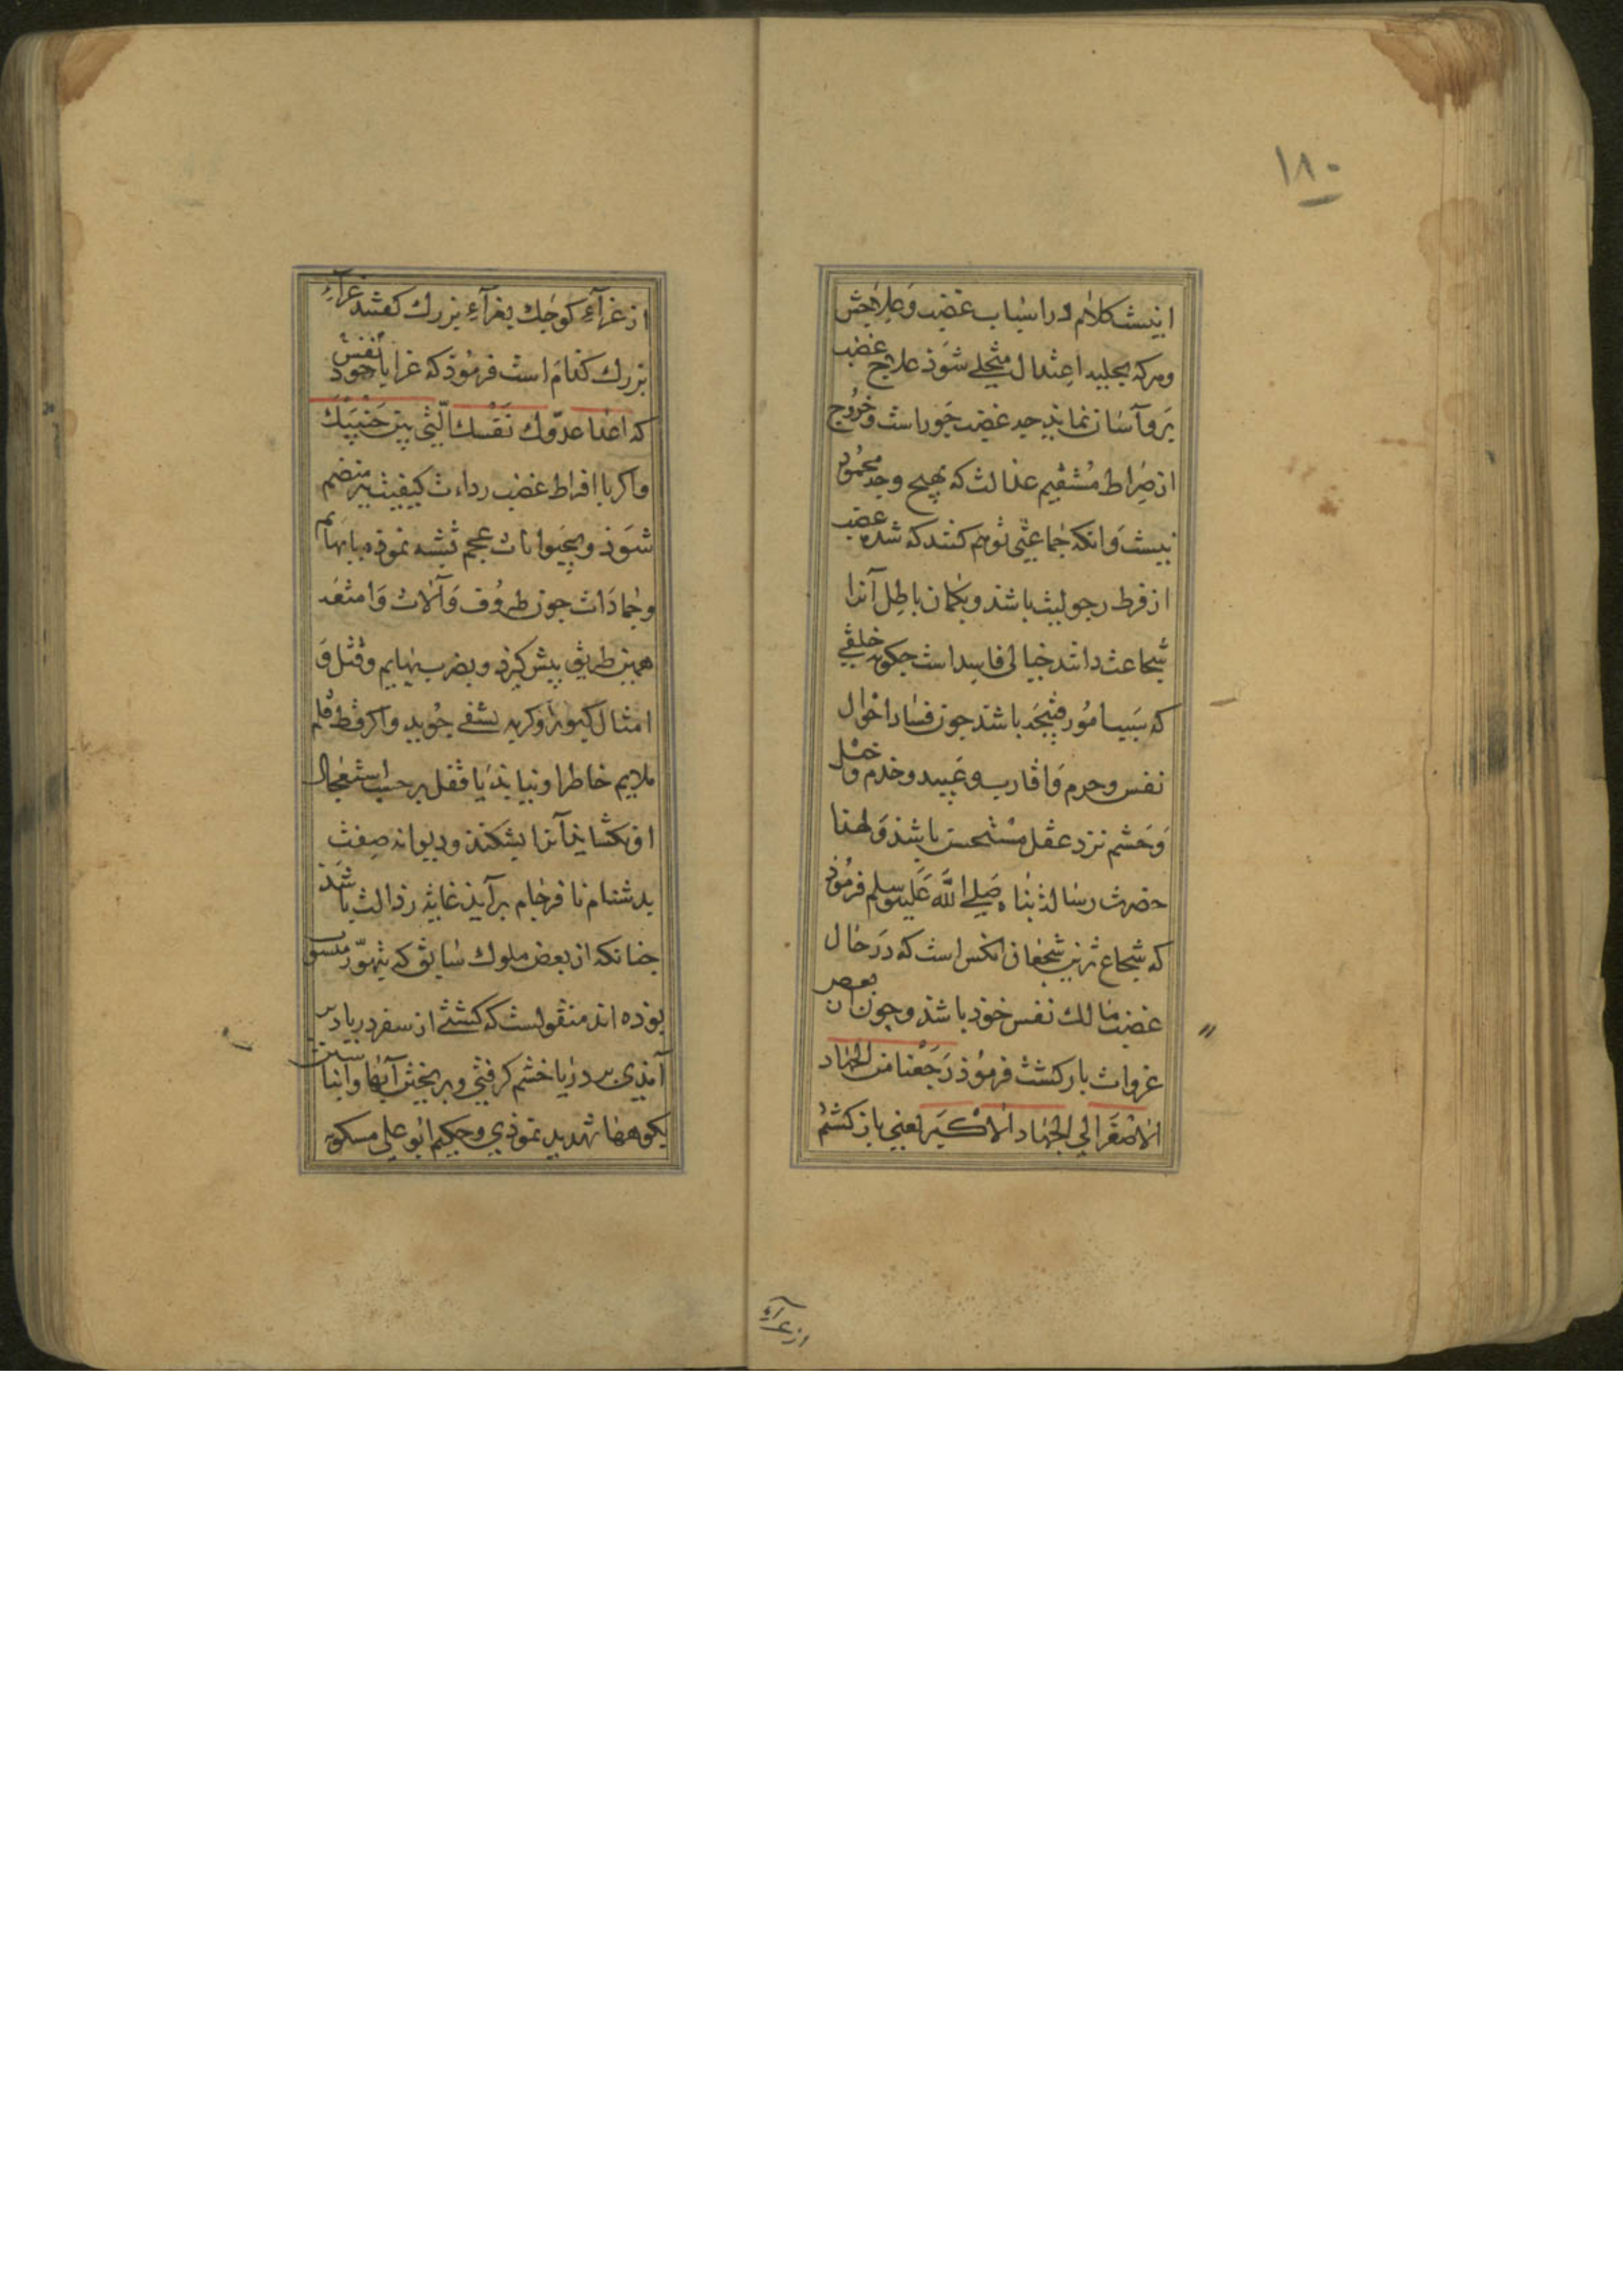 ۱۸۰
اینست کلام در اسباب غضب و علاجش
و هرکه بحلیه اعتدال متحلی شود علاج غضب
بر و آسان نماید جه غضب جور است و خروج
از صراط مستقیم عدالت که بهیچ وجه محمود
نیست و انکه جماعتی توهم کنند که شدة غضب
از فرط رجولیت باشد و بکمان باطل آنرا
شجاعت دانند خیالی فاسد است جکونه خلقی
که سبب امور قبیحه باشد جون فساد احوال
نفس و حرم و اقارب و عبید و خدم و خیل
و حشم نزد عقل مستحسن باشد و لهذا
حضرت رسالة بناه صَلی اللّه عَلیه وسلم فرموذ
که شجاع ترین شجعان انکس است که در حال
غضب مالك نفس خوذ باشد و جون از بعض
غزوات باز کشت فرموذ رَجَعْنا من الجهاد
الاصْغَر الی الجهاد الاكْبَر یعنی باز کشتم
از غزآءِ
از غزآءِ کوجك بغزآءِ بزرك کفتند غزآءِ
بزرك کدام است فرموذ که غزا با نفس خوذ
که اعدا عدّوك نَفْسك الّتی بین جَنْبَیْكَ
واکر با افراط غضب رداءت کیفیت نیز منضم
شوذ و بحیوانات عجم تشبه نموذه با بهایم
و جمادات جون ظروف و آلات و امتعه
همین طریق پیش کیرذ و بضرب بهایم و قتل و
امثال کبوتر و کربه تشفی جوید و اکر قط قلم
ملایم خاطر او نیایذ یا قفل بر حسب استعجال
او نکشایذ آنرا بشکند و دیوانه صفت
بدشنام نا فرجام برآیذ غایة رذالت باشذ
جنانکه از بعض ملوك سابق که بتهوّر منسوب
بوذه اند منقولست که کشتی از سفر دریا دیر
آمذی بر دریا خشم کرفتی و بر بختن آبها و انباشتن
بکوهها تهدید نموذی و حکیم ابو علی مسکویه